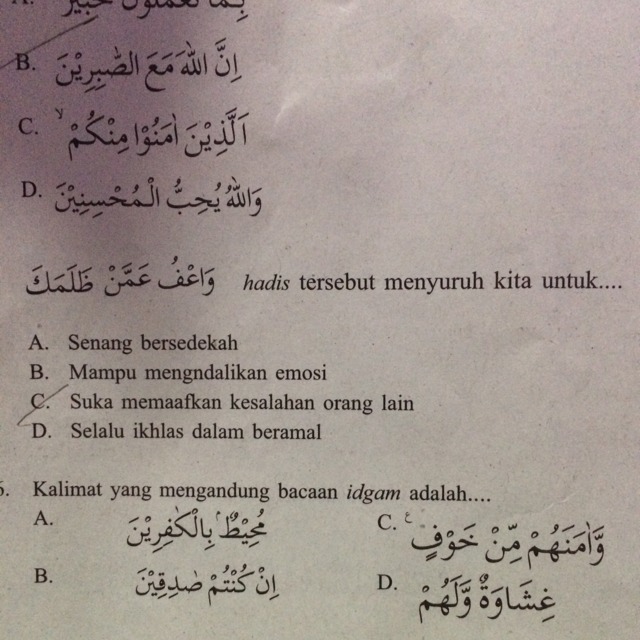 A. بِمَا تَعْمَلُوْنَ خَبِيْرٌ
B. اِنَّ اللّٰهَ مَعَ الصّٰبِرِيْنَ
C. اَلَّذِيْنَ اٰمَنُوْا مِنْكُمْ ۙ
D. وَاللّٰهُ يُحِبُّ الْمُحْسِنِيْنَ
وَاعْفُ عَمَّنْ ظَلَمَكَ hadis tersebut menyuruh kita untuk....
A. Senang bersedekah
B. Mampu mengndalikan emosi
C. Suka memaafkan kesalahan orang lain
D. Selalu ikhlas dalam beramal
6. Kalimat yang mengandung bacaan idgam adalah....
A. مُحِيْطٌ ۢ بِالْكٰفِرِيْنَ
C. وَّاٰمَنَهُمْ مِّنْ خَوْفٍ ࣖ
B. اِنْ كُنْتُمْ صٰدِقِيْنَ
D. غِشَاوَةٌ وَّلَهُمْ